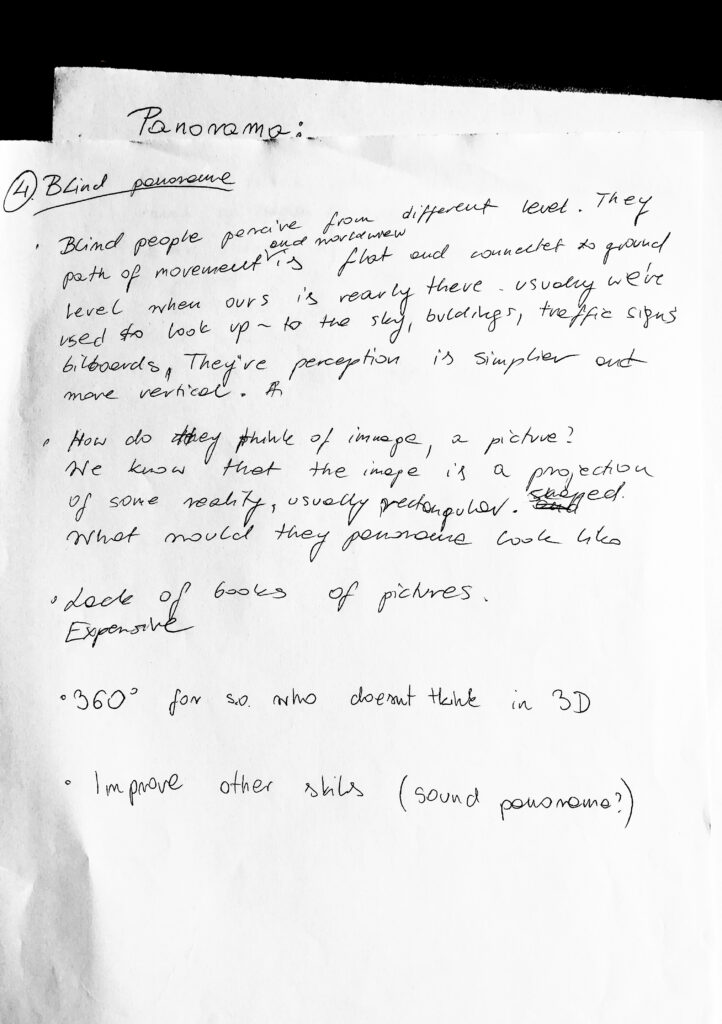 Panorama:
4. Blind panorame
• Blind people percive from different level. They
and worldview
path of movement is flat and connectet to ground
level when ours is rearly there. usually we're
used to look up ~ to the sky, buldings, traffic signs
bilboards, They're perception is simplier and
more vertical. A
• How do they think of immage, a picture?
We know that the image is a projection
of some reality, usually rectangular. shaped.
What would they panorama look like
• Lack of books of pictures.
Expensive
• 360° for s.o. who doesnt think in 3D
• Improve other skils (sound panorama?)